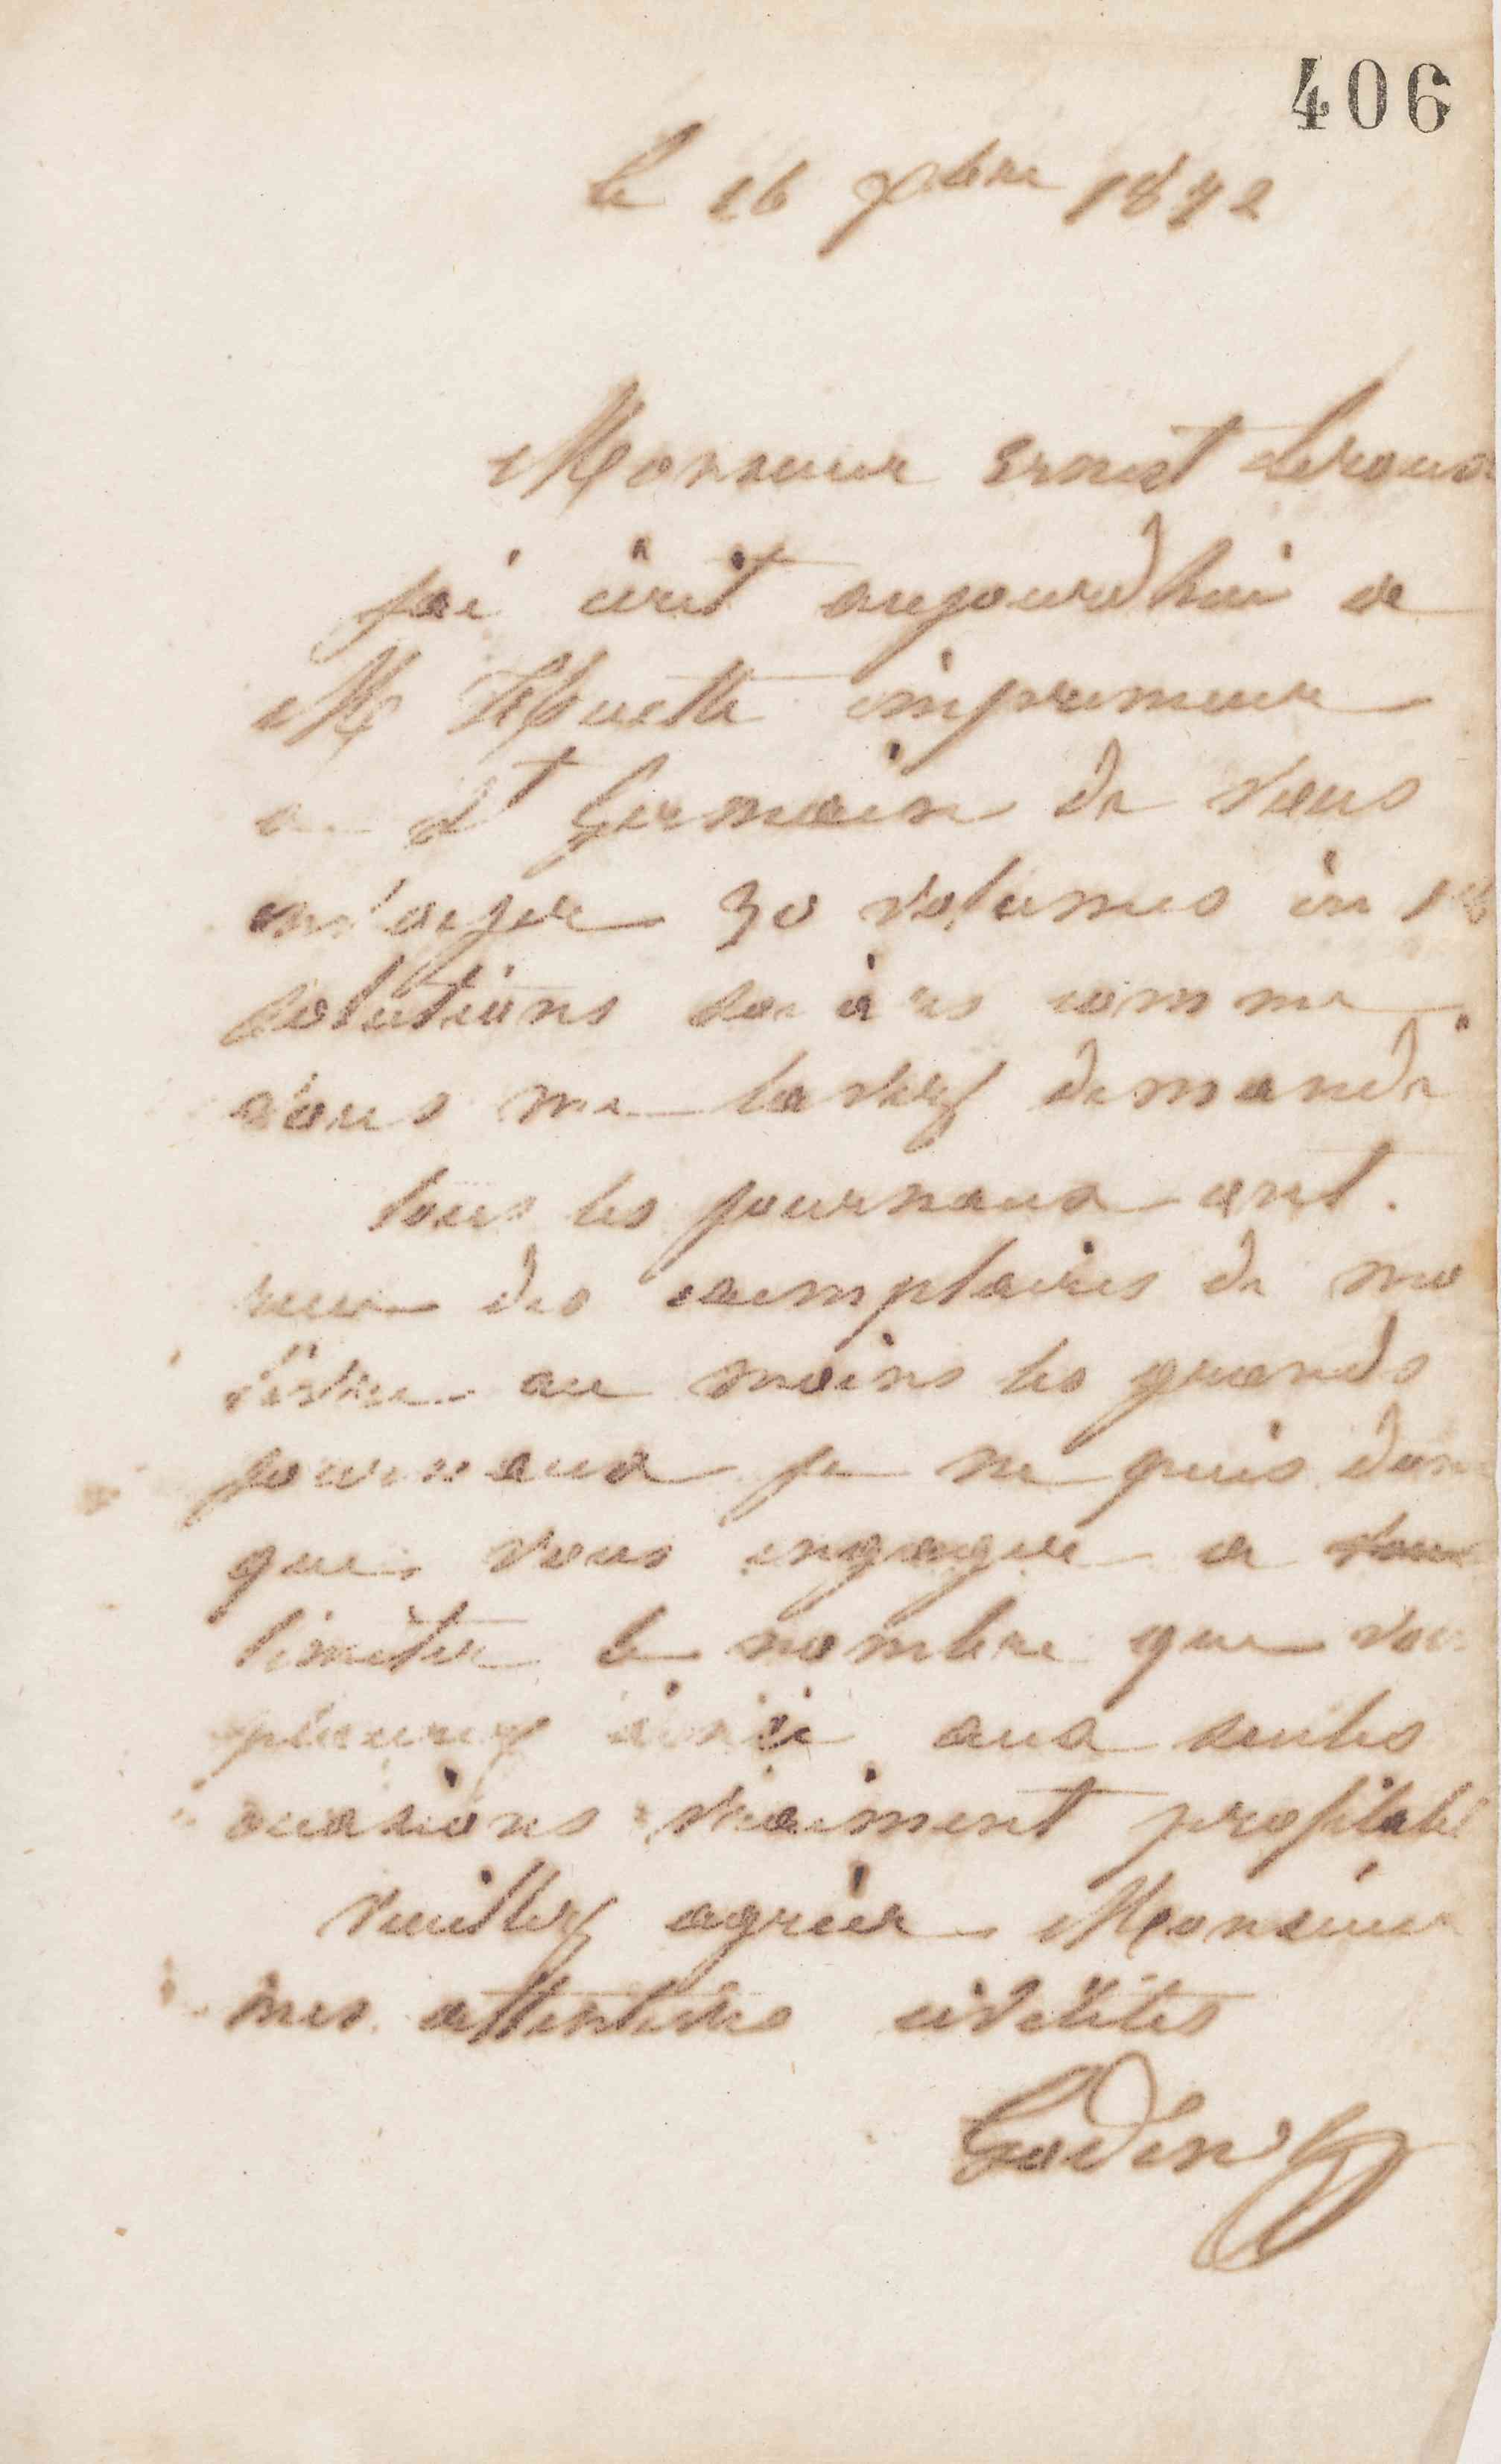 406
le 16 9bre 1872
Monsieur Ernest Leroux
j'ai écrit aujourdhui a
Mr Heutte imprimeur
a St Germain de vous
envoyer 30 volumes in 18
solutions sociales comme
vous me lavez demandé
tous les journaux ont
reçu des exemplaires de mo
livre au moins les grands
journaux je ne puis donc
que vous engager a
limiter le nombre que vou
placerez ainsi aux seules
occasions vraiment profitabl
veuillez agréer Monsieur
mes attentives civilités
Godin